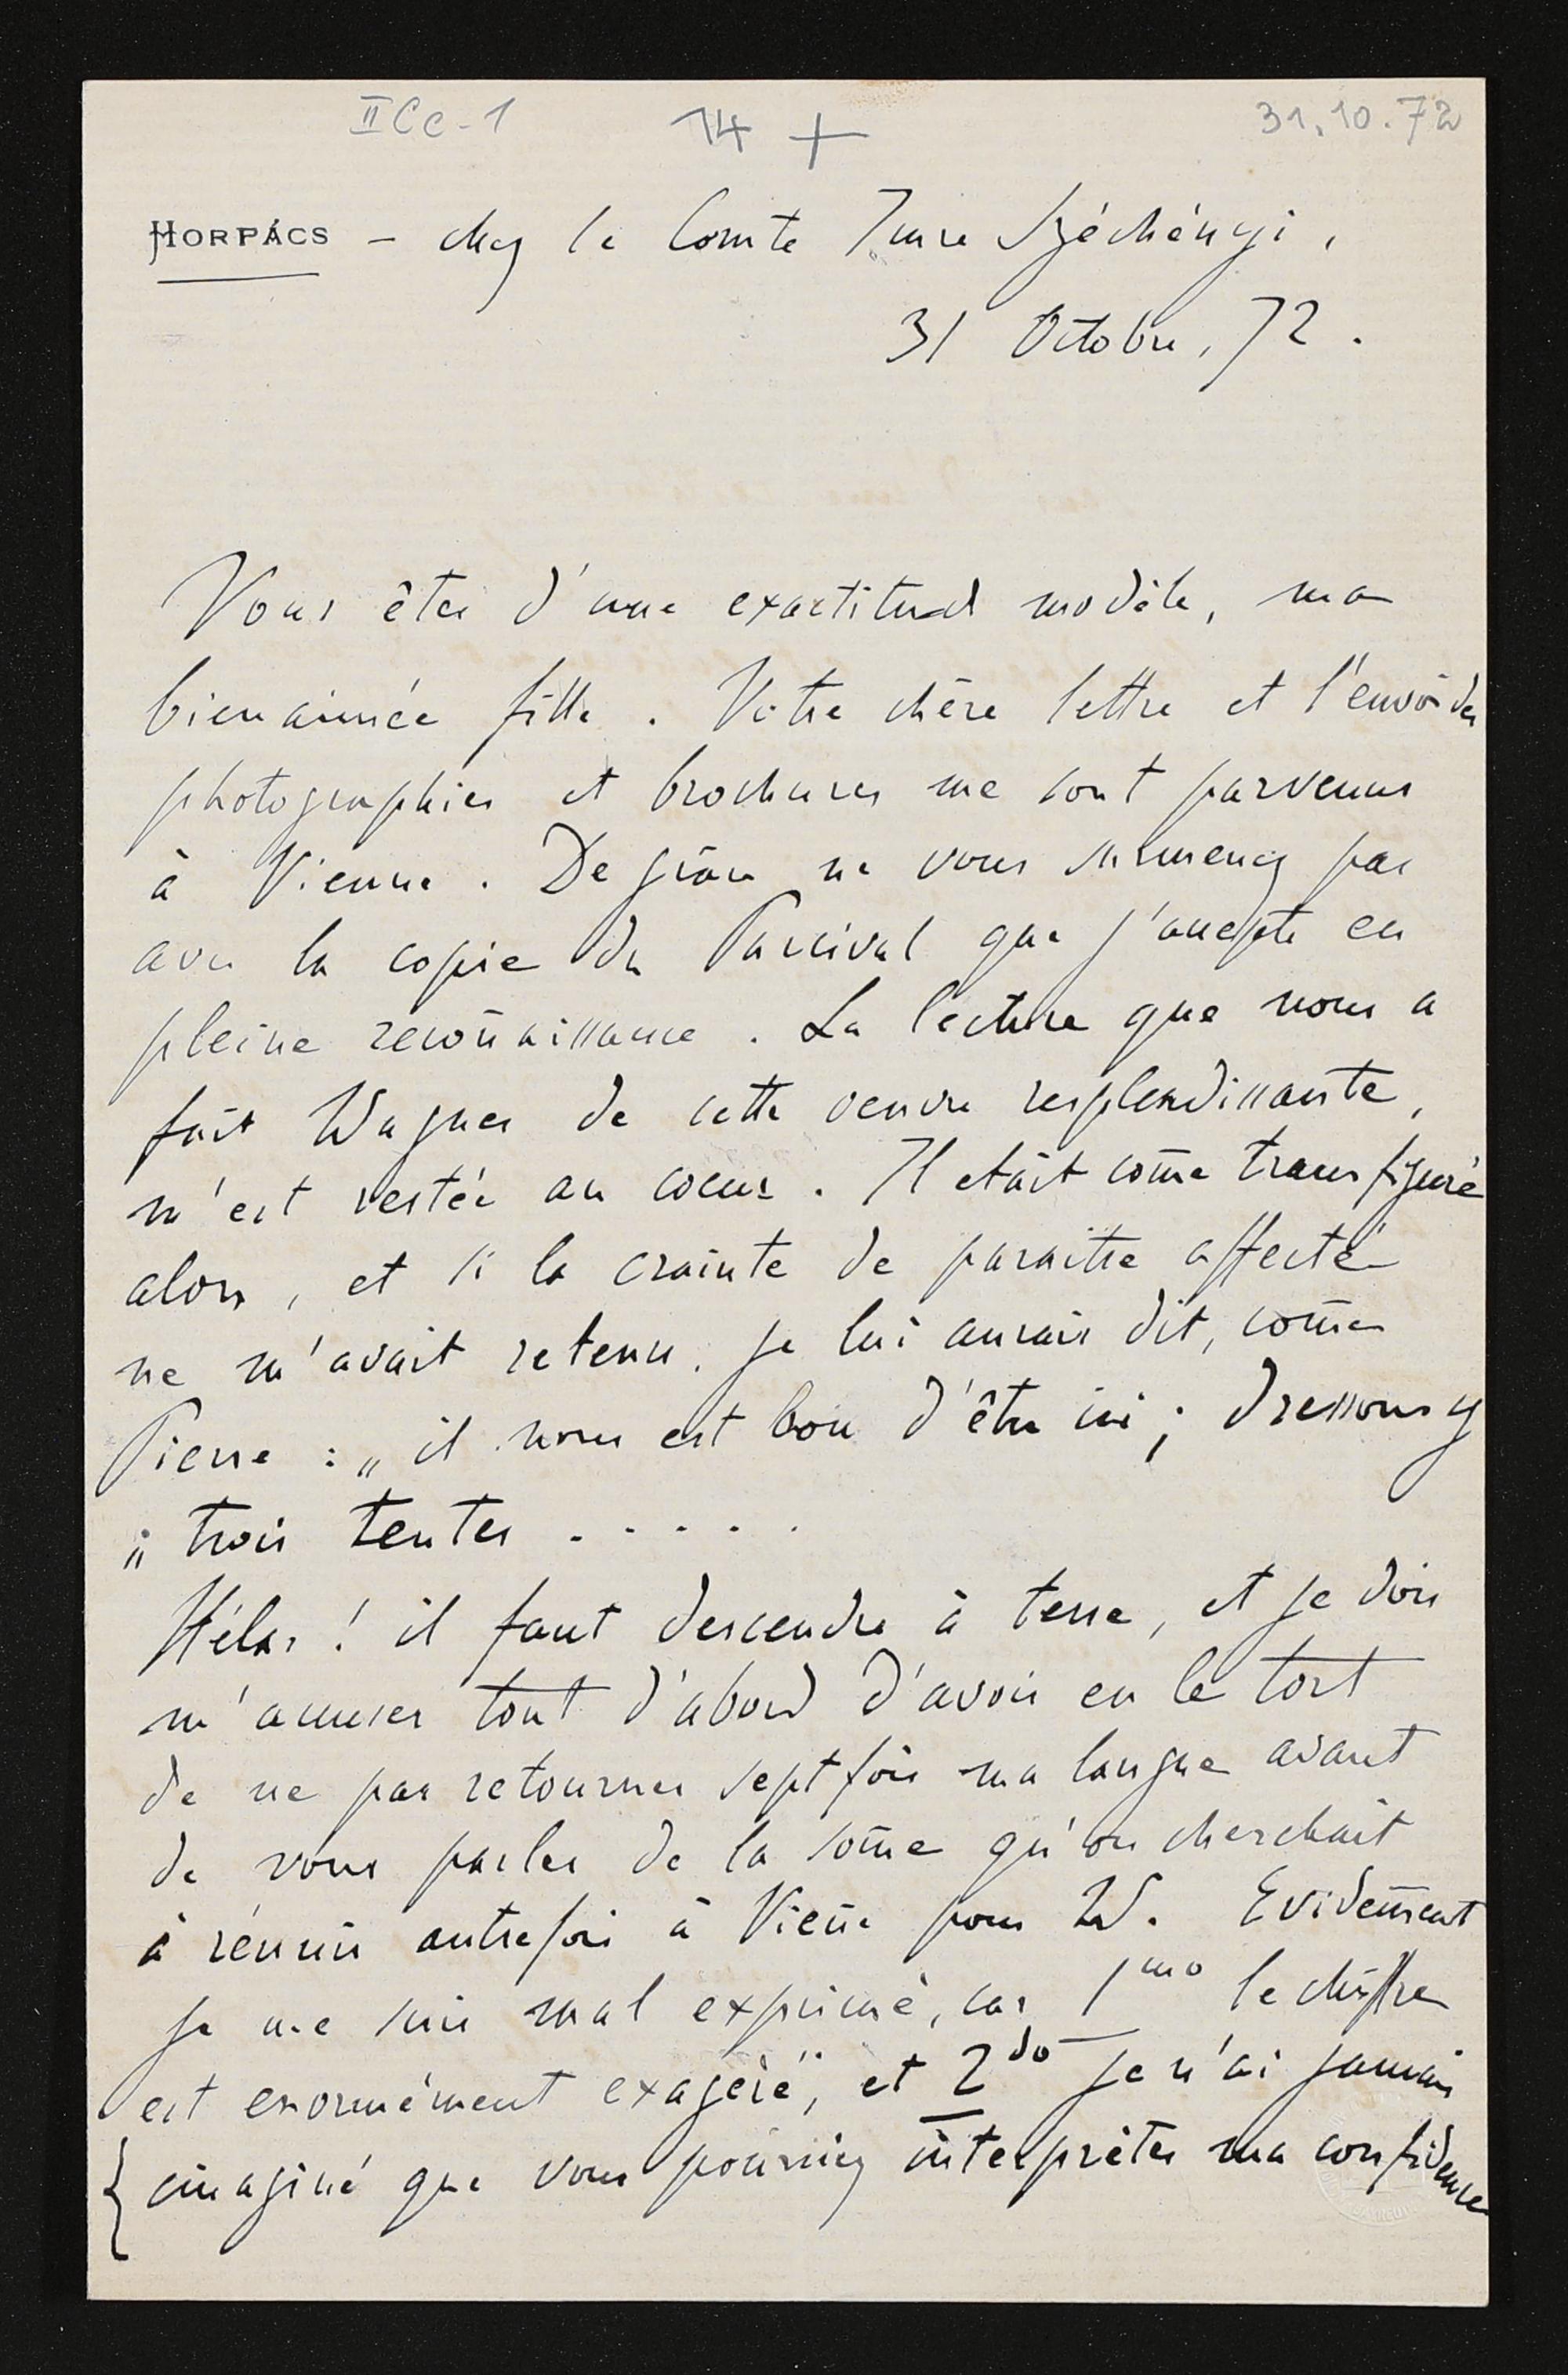 II Cc-1 14 + 31.10.72
HORPÁCS – chez le Comte Imre Széchényi,
31 Octobre, 72.
Vous êtes d'une exactitude modèle, ma
bien aimée fille. Votre chère lettre et l'envoi des
photographies et brochures me sont parvenus
à Vienne. De grâce ne vous surmenez pas
avec la copie du Parcival que j'accepte en
pleine recon̄aissance. La lecture que nous a
fait Wagner de cette oeuvre resplendissante,
m'est restée au coeur. Il etait com̄e transfiguré
alors, et si la crainte de paraitre affecté
ne m'avait retenu, je lui aurais dit, com̄e
Pierre : „il nous est bon d'être ici ; dressons y
„trois tentes . . . . .
Hélas ! il faut descendre à terre, et je dois
m'accuser tout d'abord d'avoir eu le tort
de ne pas retourner sept fois ma langue avant
de vous parler de la som̄e qu'on cherchait
à réunir autrefois à Vien̄e pour W. Evidem̄ent
je me suis mal exprimé, car 1mo le chiffre
est enormément exagéré", et 2do je n'ai jamais
{ imaginé que vous pourriez interprèter ma confidence